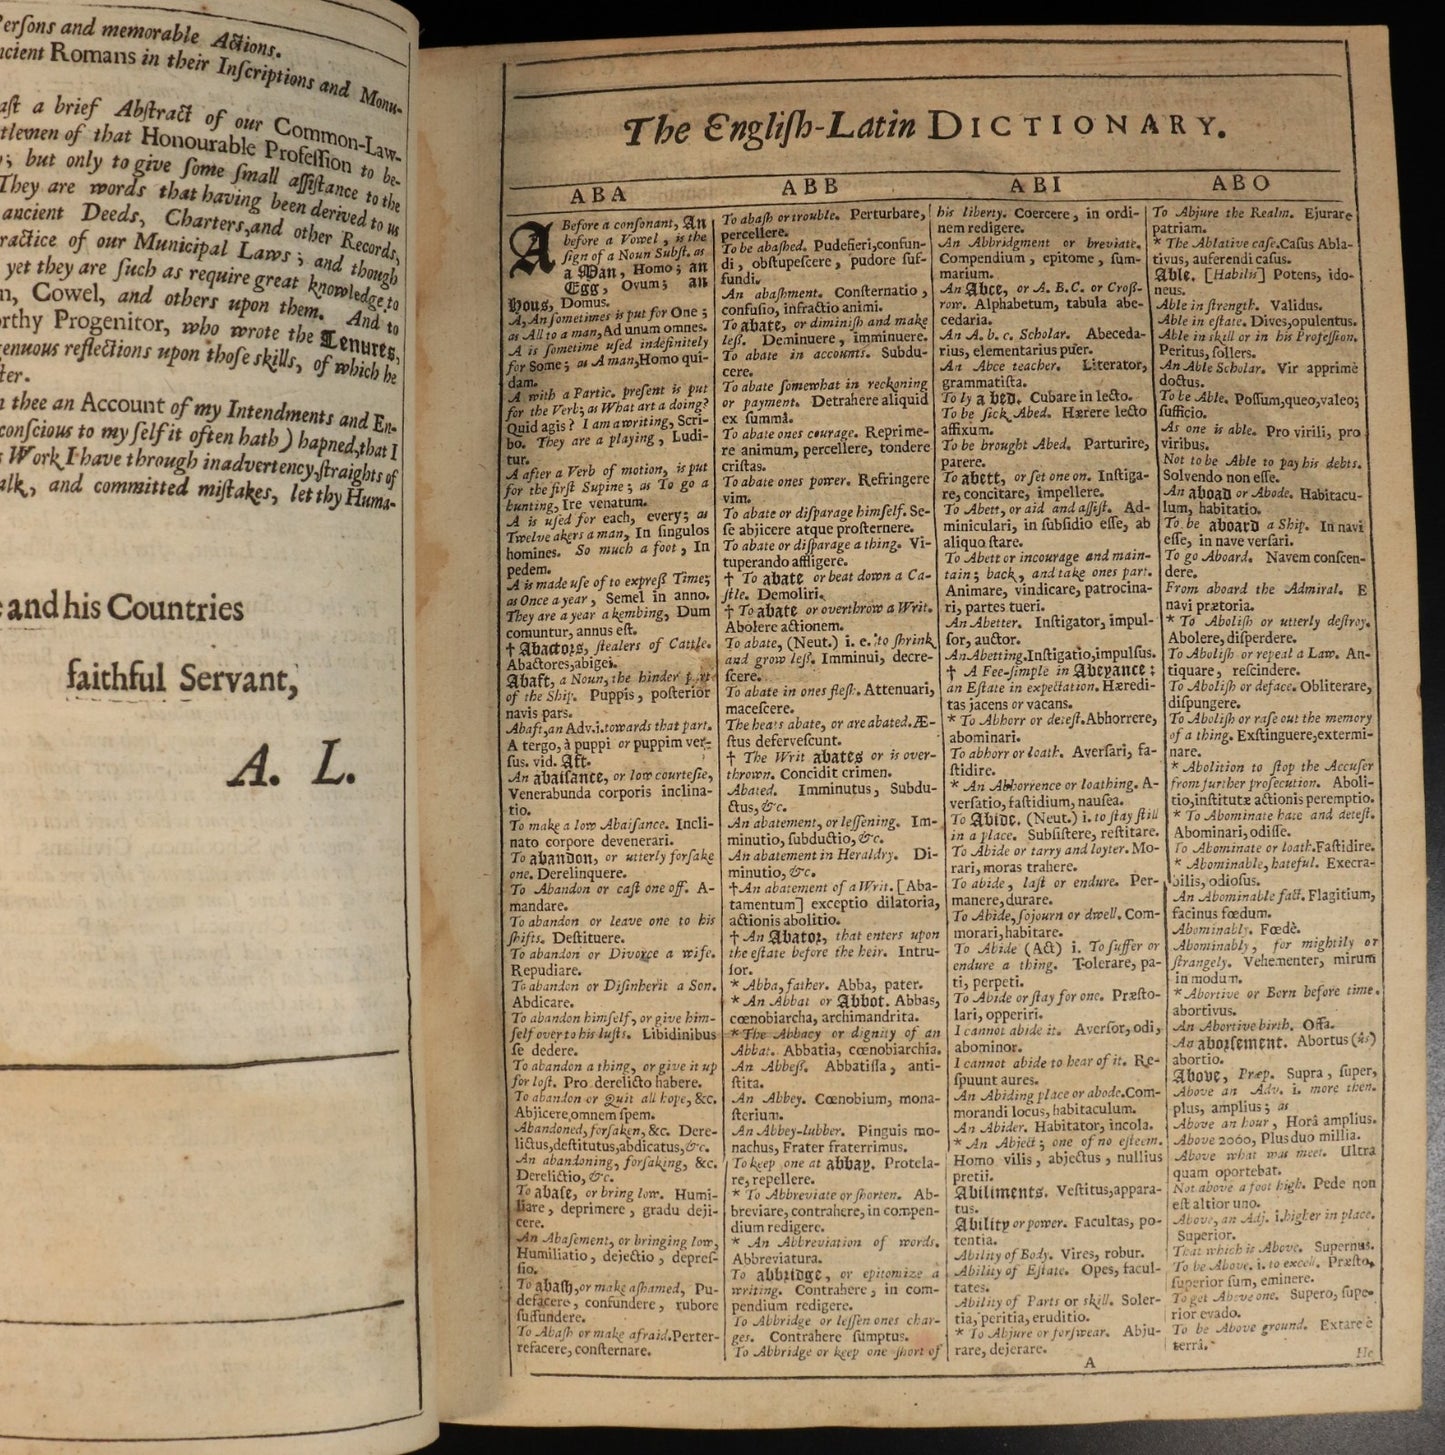 Perſons and memorable Actions.
ncient Romans in their Inſcriptions and Monu-
aſt a brief Abſtract of our Common-Law-
tlemen of that Honourable Profeſſion to be-
; but only to give ſome ſmall aſſiſtance to the
They are words that having been derived to us
ancient Deeds, Charters, and other Records,
ractice of our Municipal Laws; and though
yet they are ſuch as require great knowledge to
n, Cowel, and others upon them. And to
rthy Progenitor, who wrote the Tenures,
genuous reflections upon thoſe skills, of which he
ter.
thee an Account of my Intendments and En-
conſcious to my ſelf it often hath) hapned, that I
Work I have through inadvertency, ſtraights of
alk, and committed miſtakes, let thy Huma-
and his Countries
faithful Servant,
A. L.
The Engliſh-Latin DICTIONARY.
ABA
A Before a conſonant, An
before a Vowel, is the
ſign of a Noun Subſt. as
a Man, Homo; an
Egg, Ovum; an
Hous, Domus.
A, An ſometimes is put for One;
as All to a man, Ad unum omnes.
A is ſometime uſed indefinitely
for Some; as A man, Homo qui-
dam.
A with a Partic. preſent is put
for the Verb; as What art a doing?
Quid agis? I am a writing, Scri-
bo. They are a playing, Ludi-
tur.
A after a Verb of motion, is put
for the firſt Supine; as To go a
hunting, Ire venatum.
A is uſed for each, every; as
Twelve akers a man, In ſingulos
homines. So much a foot, In
pedem.
A is made uſe of to expreſs Time;
as Once a year, Semel in anno.
They are a year a kembing, Dum
comuntur, annus eſt.
† Abactors, ſtealers of Cattle.
Abactores, abigei.
Abaft, a Noun, the hinder part
of the Ship. Puppis, poſterior
navis pars.
Abaft, an Adv. i. towards that part.
A tergo, à puppi or puppim ver-
ſus. vid. Aft.
An abaiſance, or low courteſie,
Venerabunda corporis inclina-
tio.
To make a low Abaiſance. Incli-
nato corpore devenerari.
To abandon, or utterly forſake
one. Derelinquere.
To Abandon or caſt one off. A-
mandare.
To abandon or leave one to his
ſhifts. Deſtituere.
To abandon or Divorce a wife.
Repudiare.
To abandon or Diſinherit a Son.
Abdicare.
To abandon himſelf, or give him-
ſelf over to his luſts. Libidinibus
ſe dedere.
To abandon a thing, or give it up
for loſt. Pro derelicto habere.
To abandon or Quit all hope, &c.
Abjicere omnem ſpem.
Abandoned, forſaken, &c. Dere-
lictus, deſtitutus, abdicatus, &c.
An abandoning, forſaking, &c.
Derelictio, &c.
To abaſe, or bring low. Humi-
liare, deprimere, gradu deji-
cere.
An Abaſement, or bringing low,
Humiliatio, dejectio, depreſ-
ſio.
To abaſh, or make aſhamed, Pu-
defacere, confundere, rubore
ſuffundere.
To Abaſh or make afraid. Perter-
refacere, conſternare.
ABB
To abaſh or trouble. Perturbare,
percellere.
To be abaſhed. Pudefieri, confun-
di, obſtupeſcere, pudore ſuf-
fundi.
An abaſhment. Conſternatio,
confuſio, infractio animi.
To abate, or diminiſh and make
leſs. Deminuere, imminuere.
To abate in accounts. Subdu-
cere.
To abate ſomewhat in reckoning
or payment. Detrahere aliquid
ex ſummâ.
To abate ones courage. Reprime-
re animum, percellere, tondere
criſtas.
To abate ones power. Refringere
vim.
To abate or diſparage himſelf. Se-
ſe abjicere atque proſternere.
To abate or diſparage a thing. Vi-
tuperando affligere.
† To abate or beat down a Ca-
ſtle. Demoliri.
† To abate or overthrow a Writ.
Abolere actionem.
To abate, (Neut.) i. e. to ſhrink
and grow leſs. Imminui, decre-
ſcere.
To abate in ones fleſh. Attenuari,
maceſcere.
The hears abate, or are abated. Æ-
ſtus deferveſcunt.
† The Writ abates or is over-
thrown. Concidit crimen.
Abated. Imminutus, Subdu-
ctus, &c.
An abatement, or leſſening. Im-
minutio, ſubductio, &c.
An abatement in Heraldry. Di-
minutio, &c.
† An abatement of a Writ. [Aba-
tamentum] exceptio dilatoria,
actionis abolitio.
† An Abator, that enters upon
the eſtate before the heir. Intru-
ſor.
* Abba, father. Abba, pater.
* An Abbat or Abbot. Abbas,
cœnobiarcha, archimandrita.
* The Abbacy or dignity of an
Abbat. Abbatia, cœnobiarchia.
An Abbeſs. Abbatiſſa, anti-
ſtita.
An Abbey. Cœnobium, mona-
ſterium.
An Abbey-lubber. Pinguis mo-
nachus, Frater fraterrimus.
To keep one at abbay. Protela-
re, repellere.
* To Abbreviate or ſhorten. Ab-
breviare, contrahere, in compen-
dium redigere.
* An Abbreviation of words.
Abbreviatura.
To abbridge, or epitomize a
writing. Contrahere, in com-
pendium redigere.
To Abbridge or leſſen ones char-
ges. Contrahere ſumptus.
To Abbridge or keep one ſhort of
ABI
his liberty. Coercere, in ordi-
nem redigere.
An Abbridgment or breviate.
Compendium, epitome, ſum-
marium.
An Abce, or A. B. C. or Croſs-
row. Alphabetum, tabula abe-
cedaria.
An A. b. c. Scholar. Abeceda-
rius, elementarius puer.
An Abce teacher. Literator,
grammatiſta.
To ly a bed. Cubare in lecto.
To be ſick Abed. Hærere lecto
affixum.
To be brought Abed. Parturire,
parere.
To abett, or ſet one on. Inſtiga-
re, concitare, impellere.
To Abett, or aid and aſſiſt. Ad-
miniculari, in ſubſidio eſſe, ab
aliquo ſtare.
To Abett or incourage and main-
tain; back, and take ones part.
Animare, vindicare, patrocina-
ri, partes tueri.
An Abetter. Inſtigator, impul-
ſor, auctor.
An Abetting. Inſtigatio, impulſus.
† A Fee-ſimple in Abeyance:
an Eſtate in expectation. Hæredi-
tas jacens or vacans.
* To Abhorr or deteſt. Abhorrere,
abominari.
To abhorr or loath. Averſari, fa-
ſtidire.
* An Abhorrence or loathing. A-
verſatio, faſtidium, nauſea.
To Abide. (Neut.) i. to ſtay ſtill
in a place. Subſiſtere, reſtitare.
To Abide or tarry and loyter. Mo-
rari, moras trahere.
To abide, laſt or endure. Per-
manere, durare.
To Abide, ſojourn or dwell. Com-
morari, habitare.
To Abide (Act) i. To ſuffer or
endure a thing. Tolerare, pa-
ti, perpeti.
To Abide or ſtay for one. Præſto-
lari, opperiri.
I cannot abide it. Averſor, odi,
abominor.
I cannot abide to hear of it. Re-
ſpuunt aures.
An Abiding place or abode. Com-
morandi locus, habitaculum.
An Abider. Habitator, incola.
* An Abject; one of no eſteem.
Homo vilis, abjectus, nullius
pretii.
Abiliments. Veſtitus, appara-
tus.
Ability or power. Facultas, po-
tentia.
Ability of Body. Vires, robur.
Ability of Eſtate. Opes, facul-
tates.
Ability of Parts or skill. Soler-
tia, peritia, eruditio.
* To Abjure or forſwear. Abju-
rare, dejerare.
A
ABO
To Abjure the Realm. Ejurare
patriam.
* The Ablative caſe. Caſus Abla-
tivus, auferendi caſus.
Able. [Habilis] Potens, ido-
neus.
Able in ſtrength. Validus.
Able in eſtate. Dives, opulentus.
Able in skill or in his Profeſſion.
Peritus, ſollers.
An Able Scholar. Vir apprimè
doctus.
To be Able. Poſſum, queo, valeo;
ſufficio.
As one is able. Pro virili, pro
viribus.
Not to be Able to pay his debts.
Solvendo non eſſe.
An aboad or Abode. Habitacu-
lum, habitatio.
To be aboard a Ship. In navi
eſſe, in nave verſari.
To go Aboard. Navem conſcen-
dere.
From aboard the Admiral. E
navi prætoria.
* To Aboliſh or utterly deſtroy.
Abolere, diſperdere.
To Aboliſh or repeal a Law. An-
tiquare, reſcindere.
To Aboliſh or deface. Obliterare,
diſpungere.
To Aboliſh or raſe out the memory
of a thing. Exſtinguere, extermi-
nare.
* Abolition to ſtop the Accuſer
from further proſecution. Aboli-
tio, inſtitutæ actionis peremptio.
* To Abominate hate and deteſt.
Abominari, odiſſe.
To Abominate or loath. Faſtidire.
* Abominable, hateful. Execra-
bilis, odioſus.
An Abominable fact. Flagitium,
facinus fœdum.
Abominably. Fœdè.
Abominably, for mightily or
ſtrangely. Vehementer, mirum
in modum.
* Abortive or Born before time.
abortivus.
An Abortive birth. Offa.
An aborſement. Abortus (ûs)
abortio.
Above, Præp. Supra, ſuper,
Above an Adv. i. more then.
plus, amplius; as
Above an hour, Horâ amplius.
Above 2000, Plus duo millia.
Above what was meet. Ultra
quam oportebat.
Not above a foot high. Pede non
eſt altior uno.
Above, an Adj. i. higher in place.
Superior.
That which is Above. Supernus.
To be Above. i. to excell. Præſto,
ſuperior ſum, eminere.
To get Above one. Supero, ſupe-
rior evado.
To be Above ground. Extare è
terrâ.
He